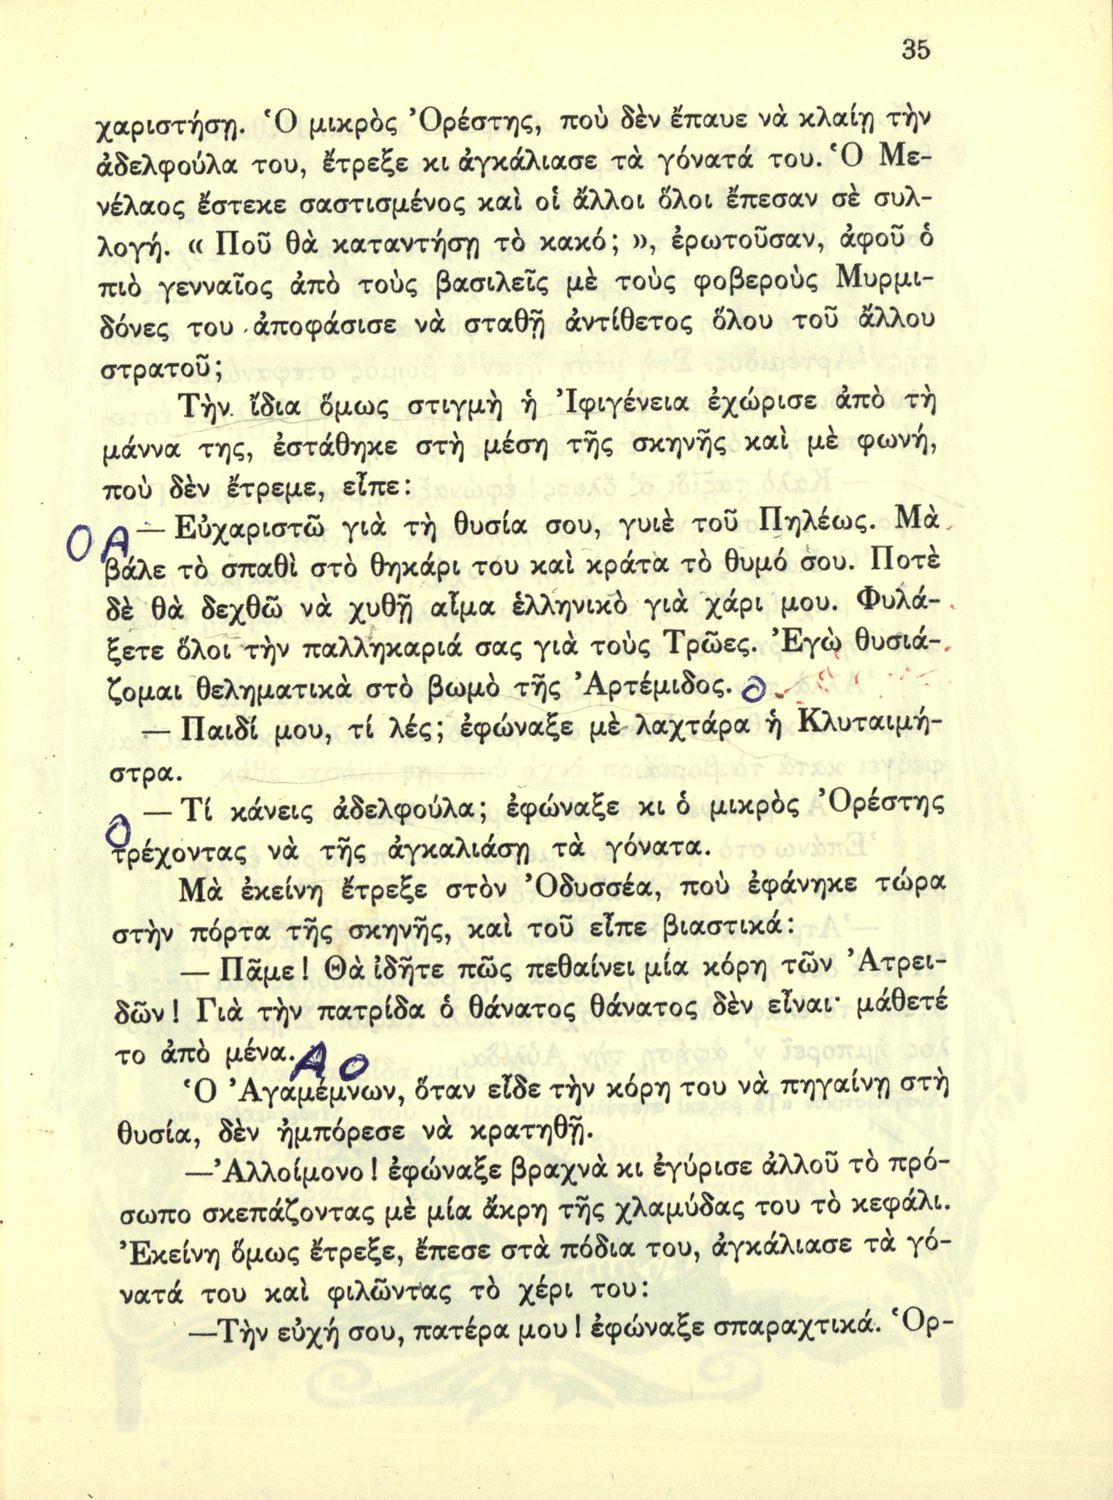 35
χαριστήσῃ. Ὁ μικρὸς Ὀρέστης, ποὺ δὲν ἔπαυε νὰ κλαίῃ τὴν
ἀδελφούλα του, ἔτρεξε κι ἀγκάλιασε τὰ γόνατά του. Ὁ Με-
νέλαος ἔστεκε σαστισμένος καὶ οἱ ἄλλοι ὅλοι ἔπεσαν σὲ συλ-
λογή. « Ποῦ θὰ καταντήσῃ τὸ κακό; », ἐρωτοῦσαν, ἀφοῦ ὁ
πιὸ γενναῖος ἀπὸ τοὺς βασιλεῖς μὲ τοὺς φοβεροὺς Μυρμι-
δόνες του ἀποφάσισε νὰ σταθῇ ἀντίθετος ὅλου τοῦ ἄλλου
στρατοῦ;
Τὴν ἴδια ὅμως στιγμὴ ἡ Ἰφιγένεια ἐχώρισε ἀπὸ τὴ
μάννα της, ἐστάθηκε στὴ μέση τῆς σκηνῆς καὶ μὲ φωνή,
ποὺ δὲν ἔτρεμε, εἶπε:
Ο Α — Εὐχαριστῶ γιὰ τὴ θυσία σου, γυιὲ τοῦ Πηλέως. Μὰ
βάλε τὸ σπαθὶ στὸ θηκάρι του καὶ κράτα τὸ θυμό σου. Ποτὲ
δὲ θὰ δεχθῶ νὰ χυθῇ αἷμα ἑλληνικὸ γιὰ χάρι μου. Φυλά-
ξετε ὅλοι τὴν παλληκαριά σας γιὰ τοὺς Τρῶες. Ἐγὼ θυσιά-
ζομαι θεληματικὰ στὸ βωμὸ τῆς Ἀρτέμιδος. Ο
— Παιδί μου, τί λές; ἐφώναξε μὲ λαχτάρα ἡ Κλυταιμή-
στρα.
Ο — Τί κάνεις ἀδελφούλα; ἐφώναξε κι ὁ μικρὸς Ὀρέστης
τρέχοντας νὰ τῆς ἀγκαλιάσῃ τὰ γόνατα.
Μὰ ἐκείνη ἔτρεξε στὸν Ὀδυσσέα, ποὺ ἐφάνηκε τώρα
στὴν πόρτα τῆς σκηνῆς, καὶ τοῦ εἶπε βιαστικά:
— Πᾶμε! Θὰ ἰδῆτε πῶς πεθαίνει μία κόρη τῶν Ἀτρει-
δῶν! Γιὰ τὴν πατρίδα ὁ θάνατος θάνατος δὲν εἶναι· μάθετέ
το ἀπὸ μένα. Α Ο
Ὁ Ἀγαμέμνων, ὅταν εἶδε τὴν κόρη του νὰ πηγαίνῃ στὴ
θυσία, δὲν ἠμπόρεσε νὰ κρατηθῇ.
—Ἀλλοίμονο! ἐφώναξε βραχνὰ κι ἐγύρισε ἀλλοῦ τὸ πρό-
σωπο σκεπάζοντας μὲ μία ἄκρη τῆς χλαμύδας του τὸ κεφάλι.
Ἐκείνη ὅμως ἔτρεξε, ἔπεσε στὰ πόδια του, ἀγκάλιασε τὰ γό-
νατά του καὶ φιλῶντας τὸ χέρι του:
—Τὴν εὐχή σου, πατέρα μου! ἐφώναξε σπαραχτικά. Ὁρ-